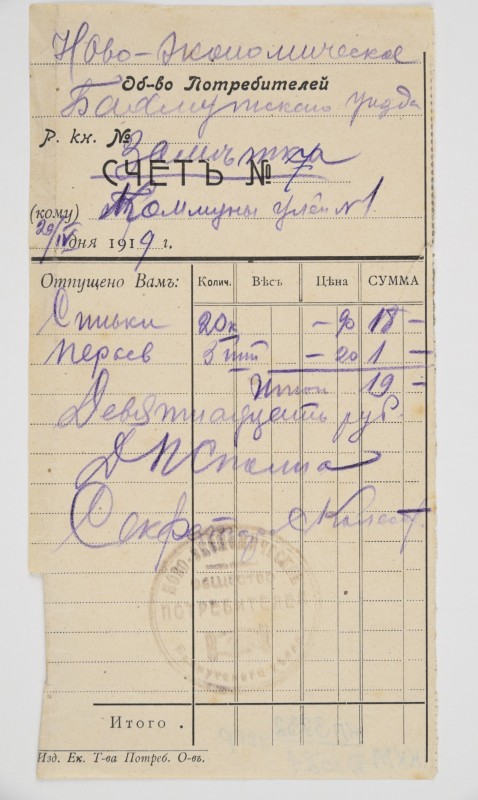 Ново-Экономическое
Об-во Потребителей
Бахмутского уезда
Р. кн. №
СЧЕТЪ № 7
(кому) Коммуны № 1
29/IV дня 1919 г.
Отпущено Вамъ: Колич. Вѣсъ Цѣна СУММА
Спички 20к – 90 18 –
перьев 5 шт – 20 1 –
Итого 19 –
Девятнадцать руб.
Секрет
НОВО-ЭКОНОМИЧЕСК
ОБЩЕСТВО
ПОТРЕБИТЕЛЕЙ
Итого .
Изд. Ек. Т-ва Потреб. О-въ.